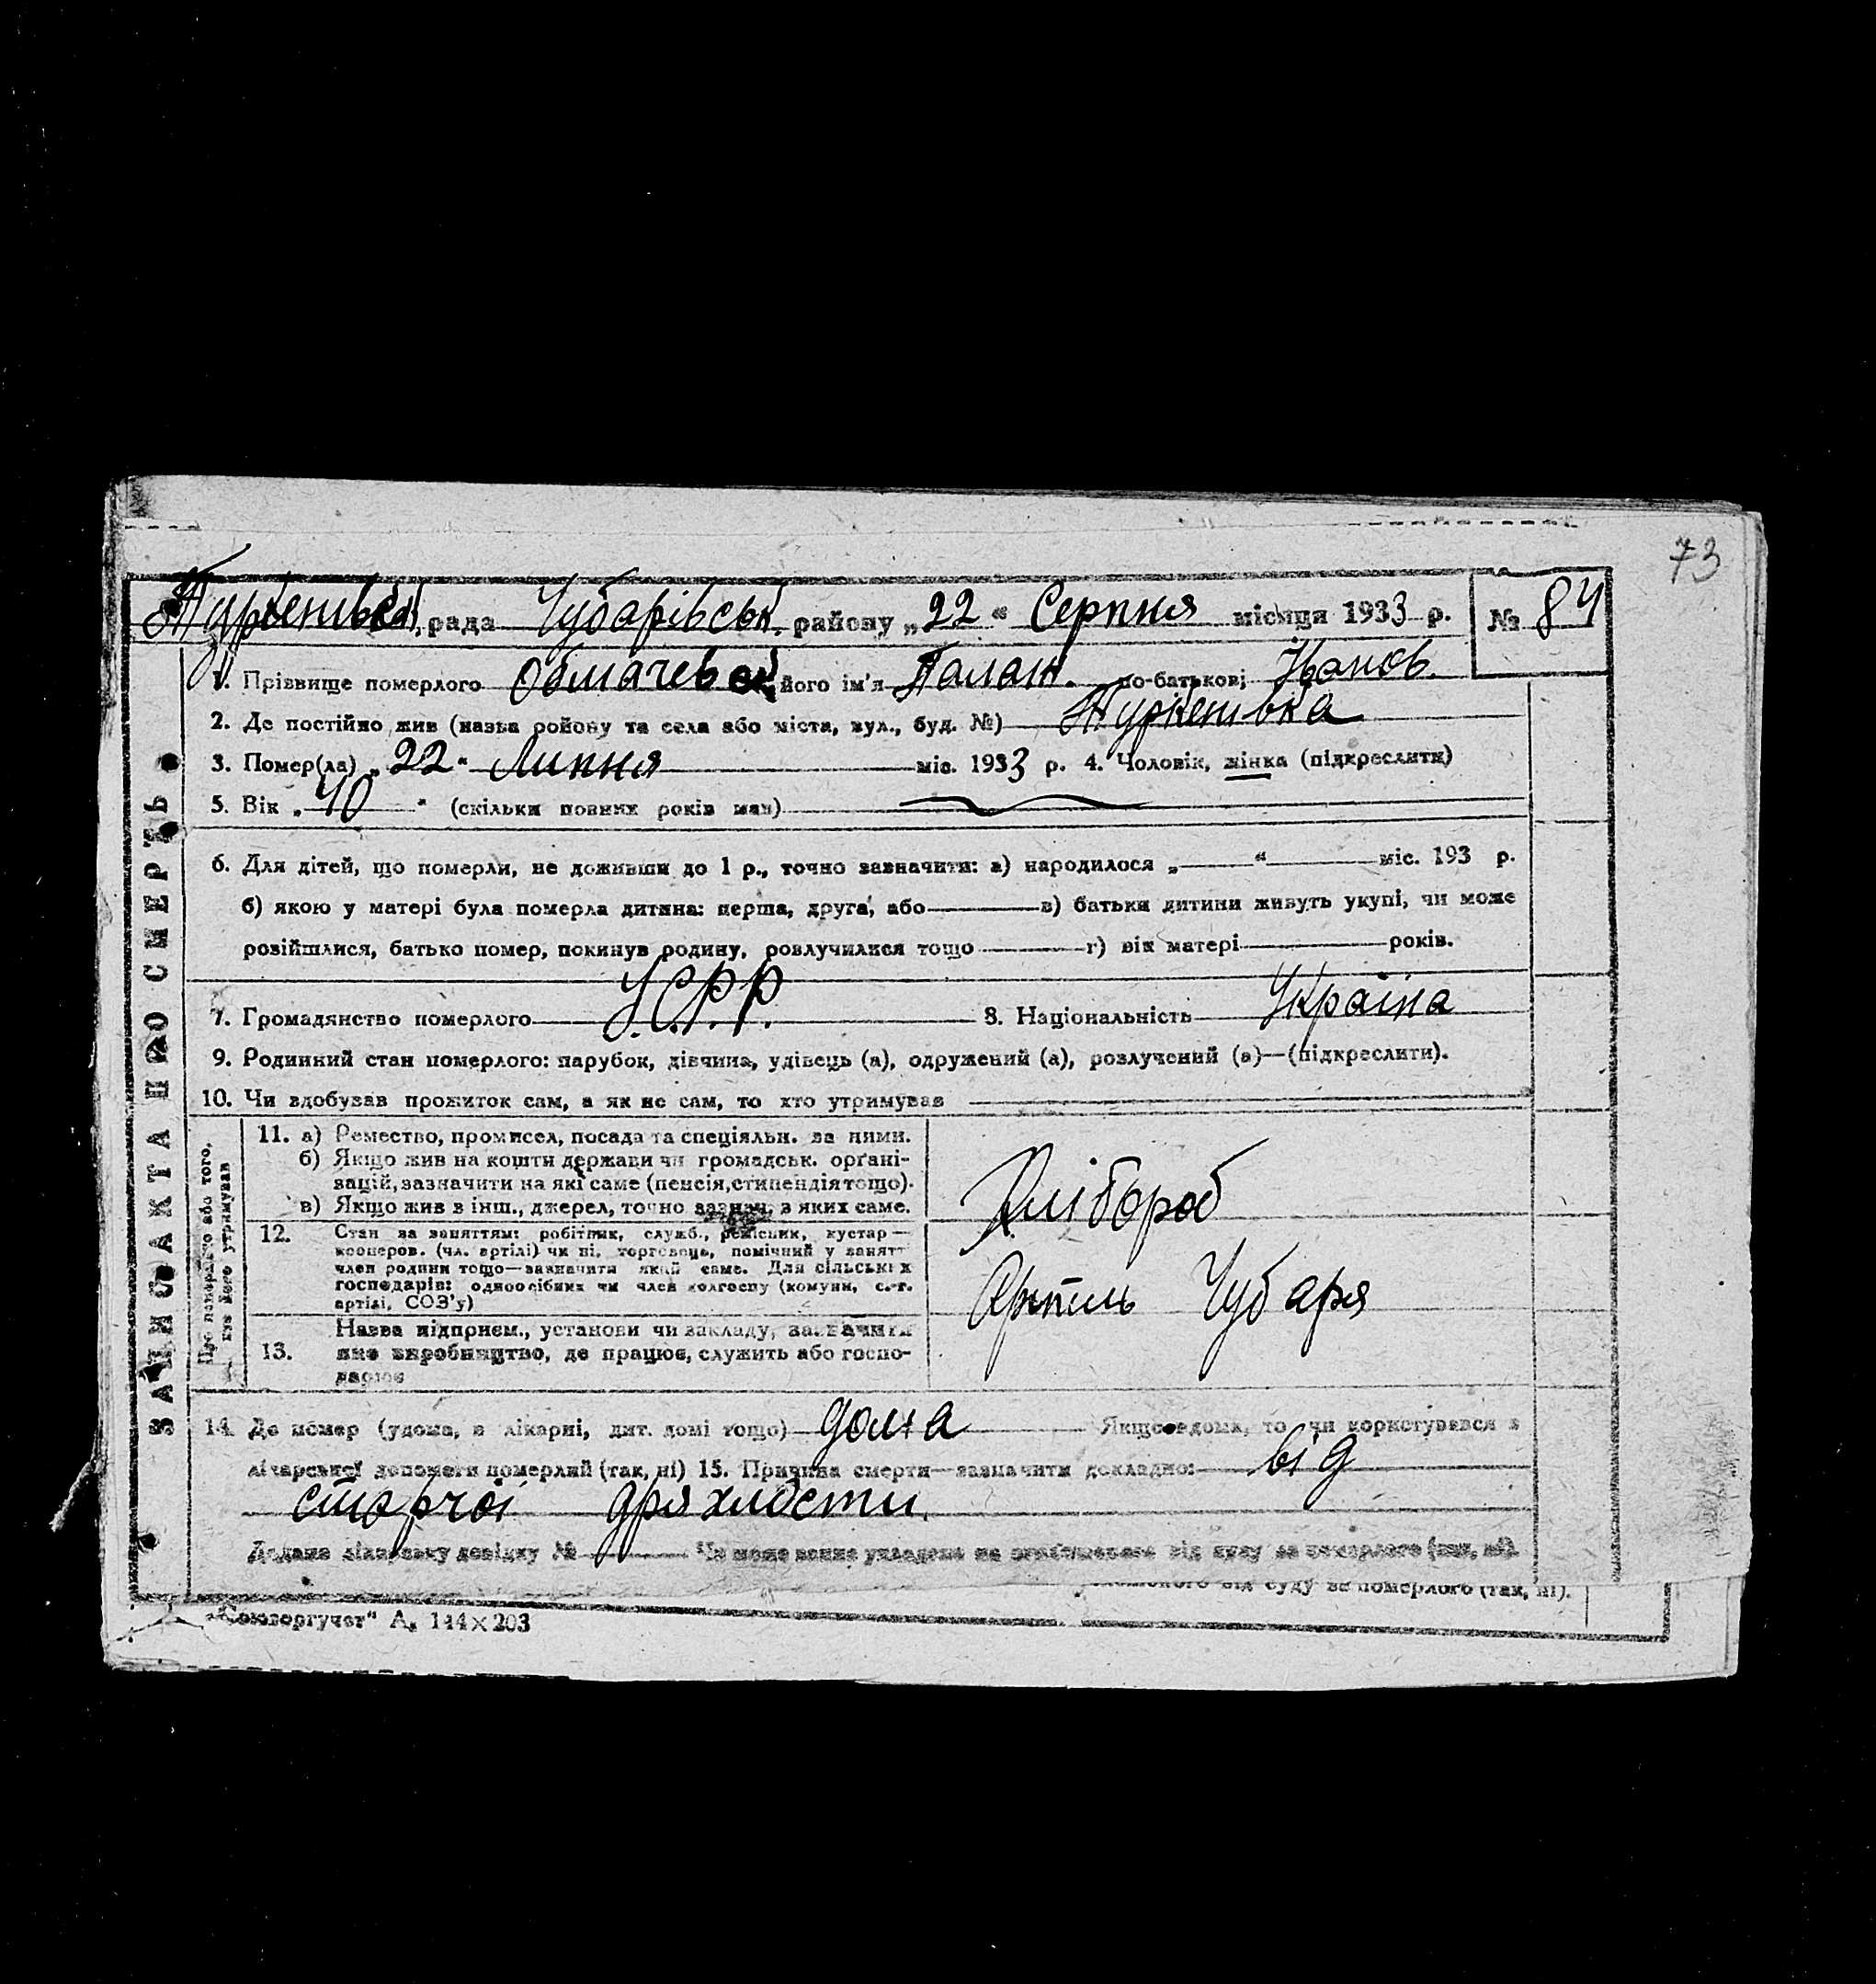 73
рада Чубарівськ. району „22“ Серпня місяця 1933 р. № 84
1. Прізвище померлого його ім'я Палаж. по-батькові Іванов.
2. Де постійно жив (назва району та села або міста, вул., буд. №)
3. Помер(ла) „22“ Липня міс. 1933 р. 4. Чоловік, жінка (підкреслити)
5. Вік „ “ (скільки повних років мав)
6. Для дітей, що померли, не доживши до 1 р., точно зазначити: а) народилося „ “ міс. 193 р.
б) якою у матері була померла дитина: перша, друга, або в) батьки дитини живуть укупі, чи може
розійшлися, батько помер, покинув родину, розлучилися тощо г) вік матері років.
7. Громадянство померлого У.С.Р.Р. 8. Національність Україна
9. Родинний стан померлого: парубок, дівчина, удівець (а), одружений (а), розлучений (а)—(підкреслити).
10. Чи здобував прожиток сам, а як не сам, то хто утримував
ЗАПИС АКТА ПРО СМЕРТЬ
Про померлого або того,
хто його утримував
11. а) Ремество, промисел, посада та спеціяльн. за ними.
б) Якщо жив на кошти держави чи громадськ. орґані-
зацій, зазначити на які саме (пенсія, стипендія тощо).
в) Якщо жив з інш., джерел, точно зазнач, з яких саме.
Хлібороб
12. Стан за заняттям: робітник, служб., ремісник, кустар—
кооперов. (чл. артілі) чи ні, торговець, помічний у занятт
член родини тощо—зазначити який саме. Для сільських
господарів: одноосібник чи член колгоспу (комуни, с.-г.
артілі, СОЗ'у)
Артиль Чубаря
13. Назва підприєм., установи чи закладу, зазначити
яке виробництво, де працює, служить або госпо-
дарює
14. Де помер (удома, в лікарні, дит. домі тощо) дома Якщо вдома, то чи користувався з
лічарської допомоги померлий (так, ні) 15. Причина смерти—зазначити докладно: від
старчої дряхлости.
Додано лікарську довідку № Чи може бути
від суду за померлого (так, ні).
„Союзоргучет“ А. 144×203